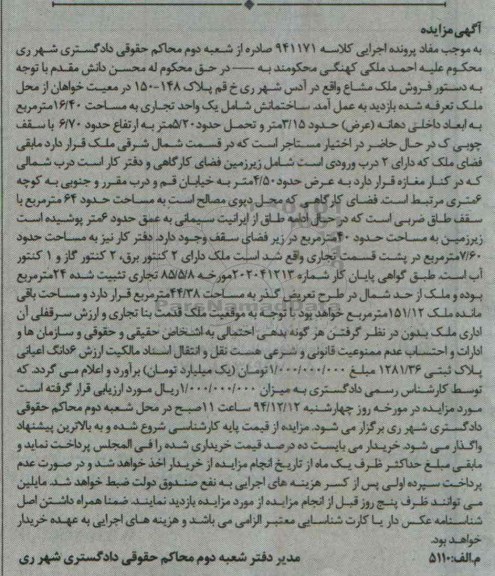 آگهی مزایده
به موجب مفاد پرونده اجرایی کلاسه ۹۴۱۱۷۱ صادره از شعبه دوم محاکم حقوقی دادگستری شهر ری
محکوم علیه احمد ملکی کهنگی محکومند به —— در حق محکوم له محسن دانش مقدم با توجه
به دستور فروش ملک مشاع واقع در آدرس شهر ری خ قم پلاک ۱۴۸-۱۵۰ در معیت خواهان از محل
ملک تعرفه شده بازدید به عمل آمد. ساختمانش شامل یک واحد تجاری به مساحت ۱۶/۴۰مترمربع
به ابعاد داخلی دهانه (عرض) حدود ۳/۱۵متر و تحمل حدود۵/۲۰متر به ارتفاع حدود ۶/۷۰ با سقف
چوبی ک در حال حاضر در اختیار مستاجر است که در قسمت شمال شرقی ملک قرار دارد مابقی
فضای ملک که دارای ۲ درب ورودی است شامل زیرزمین فضای کارگاهی و دفتر کار است درب شمالی
که در کنار مغازه قرار دارد به عرض حدود۴/۵۰متر به خیابان قم و درب مقرر و جنوبی به کوچه
۶متری مرتبط است. فضای کارگاهی که محل دپوی مصالح است به مساحت حدود ۶۴ مترمربع با
سقف طاق ضربی است که در حال ادامه طاق از ایرانیت سیمانی به عمق حدود ۶متر پوشیده است
زیرزمین به مساحت حدود ۴۰مترمربع در زیر فضای سقف وجود دارد. دفتر کار نیز به مساحت حدود
۷/۶۰مترمربع در پشت قسمت تجاری واقع شد است ملک دارای ۲ کنتور برق، ۲ کنتور گاز و ۱ کنتور
آب است. طبق گواهی پایان کار شماره ۲۰۲۰۴۱۲۱۳مورخه ۸۵/۵/۸ تجاری تثبیت شده ۲۴مترمربع
بوده و ملک از حد شمال در طرح تعریض گذر به مساحت ۴۴/۳۸مترمربع قرار دارد و مساحت باقی
مانده ملک ۱۵۱/۱۲مترمربع خواهد بود با توجه به موقعیت ملک قدمت بنا تجاری و ارزش سرقفلی آن
اداری ملک بدون در نظر گرفتن هر گونه بدهی احتمالی به اشخاص حقیقی و حقوقی و سازمان ها و
ادارات و احتساب عدم ممنوعیت قانونی و شرعی هست نقل و انتقال اسناد مالکیت ارزش ۶دانگ اعیانی
پلاک ثبتی ۱۲۸۱/۳۶ مبلغ ۱/۰۰۰/۰۰۰/۰۰۰تومان (یک میلیارد تومان) برآورد و اعلام می گردد. که
توسط کارشناس رسمی دادگستری به میزان ۱/۰۰۰/۰۰۰/۰۰۰ریال مورد ارزیابی قرار گرفته است
مورد مزایده در مورخه روز چهارشنبه ۹۴/۱۲/۱۲ ساعت ۱۱صبح در محل شعبه دوم محاکم حقوقی
دادگستری شهر ری برگزار می شود. مزایده از قیمت پایه کارشناسی شروع شده و به بالاترین پیشنهاد
واگذار می شود. خریدار می بایست ده درصد قیمت خریداری شده را فی المجلس پرداخت نماید و
مابقی مبلغ حداکثر ظرف یک ماه از تاریخ انجام مزایده از خریدار اخذ خواهد شد و در صورت عدم
پرداخت سپرده اولی پس از کسر هزینه های اجرایی به نفع صندوق دولت ضبط خواهد شد. مایلین
می توانند ظرف پنج روز قبل از انجام مزایده از مورد مزایده بازدید نمایند. ضمنا همراه داشتن اصل
شناسنامه عکس دار یا کارت شناسایی معتبر الزامی می باشد و هزینه های اجرایی به عهده خریدار
خواهد بود.
م.الف: ۵۱۱۰ مدیر دفتر شعبه دوم محاکم حقوقی دادگستری شهر ری